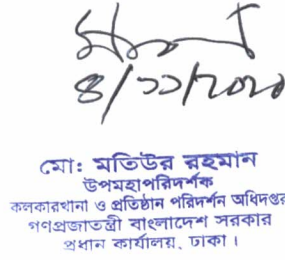 ৪/১১/২০২০
মো: মতিউর রহমান
উপমহাপরিদর্শক
কলকারখানা ও প্রতিষ্ঠান পরিদর্শন অধিদপ্তর
গণপ্রজাতন্ত্রী বাংলাদেশ সরকার
প্রধান কার্যালয়, ঢাকা।